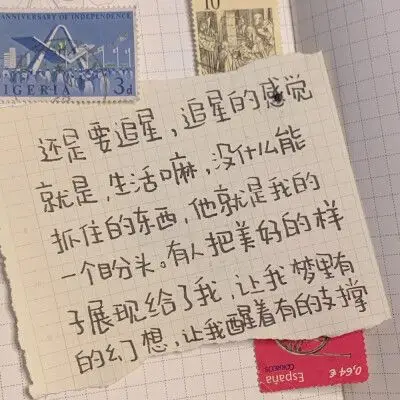 ANNIVERSARY OF INDEPENDENCE
NIGERIA 3d
10
还是要追星,追星的感觉
就是,生活嘛,没什么能
抓住的东西,他就是我的
一个盼头。有人把美好的样
子展现给了我,让我梦里有
的幻想,让我醒着有的支撑
0,64 €
España
CORREOS